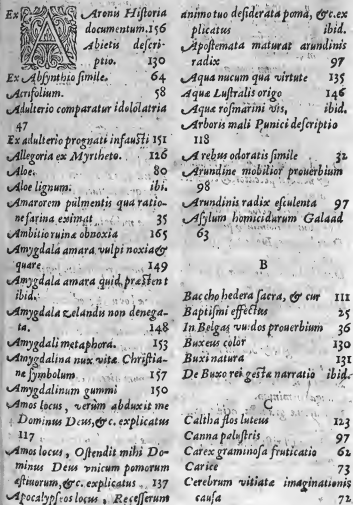 Ex Aaronis Historia
documentum. 156
Abietis descri-
ptio. 130
Ex Absynthio simile. 64
Acrifolium. 58
Adulterio comparatur idololatria
47
Ex adulterio prognati infausti 151
Allegoria ex Myrtheto. 126
Aloe. 80
Aloe lignum. ibi.
Amarorem pulmentis qua ratio-
ne farina eximat 35
Ambitio ruinæ obnoxia 165
Amygdala amara vulpi noxia &
quare 149
Amygdala amara quid præstent
ibid.
Amygdala zelandis non denega-
ta. 148
Amygdali metaphora. 153
Amygdalina nux vitæ Christia-
næ symbolum 157
Amygdalinum gummi 150
Amos locus, verùm abduxit me
Dominus Deus, &c. explicatus
117
Amos locus, Ostendit mihi Do-
minus Deus vnicum pomorum
æstiuorum, &c. explicatus. 137
Apocalypseos locus, Recesserunt
animo tuo desiderata poma, &c. ex
plicatus ibid.
Apostemata maturat arundinis
radix 97
Aqua nucum qua virtute 135
Aquæ Lustralis origo 146
Aquæ rosmarini vis, ibid.
Arboris mali Punici descriptio
118
A rebus odoratis simile 32
Arundine mobilior prouerbium
98
Arundinis radix esculenta 97
Asylum homicidarum Galaad
63
B
Baccho hedera sacra, & cur 111
Baptismi effectus 25
In Belgas vuidos prouerbium 36
Buxeus color 130
Buxi natura 131
De Buxo rei gestæ narratio ibid.
C
Caltha flos luteus 123
Canna palustris 97
Carex graminosa fruticatio 62
Carice 73
Cerebrum vitiatæ imaginationis
causa 72